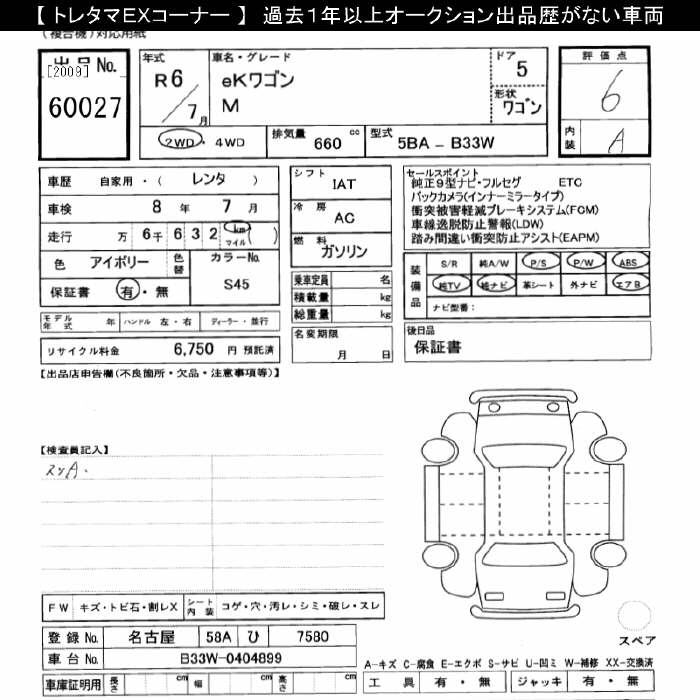 【 トレタマEXコーナー 】 過去1年以上オークション出品歴がない車両
(複合機)対応用紙
出品No.
[2009]
60027
年式
R6/7月
車名・グレード
eKワゴン
M
ドア 5
形状 ワゴン
評価点
6
内装 A
2WD・4WD
排気量 660 cc
型式 5BA - B33W
車歴 自家用・( レンタ )
車検 8年 7月
走行 万 6千 6 3 2 km マイル ( )
色 アイボリー 色替 カラーNo. S45
保証書 有・無
モデル年式 年 ハンドル 左・右 ディーラー・並行
リサイクル料金 6,750 円 預託済
シフト IAT
冷房 AC
燃料 ガソリン
乗車定員 名
積載量 kg
総重量 kg
名変期限
月 日
セールスポイント
純正9型ナビ・フルセグ ETC
バックカメラ(インナーミラータイプ)
衝突被害軽減ブレーキシステム(FCM)
車線逸脱防止警報(LDW)
踏み間違い衝突防止アシスト(EAPM)
装備品
S/R 純A/W P/S P/W ABS
純TV 純ナビ 革シート 外ナビ エアB
ナビ型番:
後日品
保証書
【出品店申告欄(不良箇所・欠品・注意事項等)】
【検査員記入】
FW キズ・トビ石・割レX シート内装 コゲ・穴・汚レ・シミ・破レ・スレ
登録No. 名古屋 58A ひ 7580
車台No. B33W-0404899
車庫証明用 長さ cm 幅 cm 高さ cm
スペア
A-キズ C-腐食 E-エクボ S-サビ U-凹ミ W-補修 XX-交換済
工具 有・無 ジャッキ 有・無